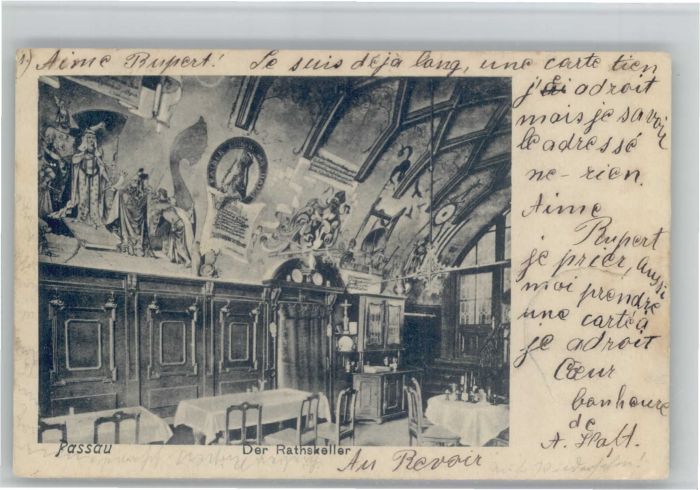 1) Aime Rupert! Je suis deja long, une carte tien
j'ai adroit
mais je savoir
le adressé
ne-rien.
Aime
Rupert
je prier, aussi
moi prendre
une carté a
je adroit
Cœur
bonheure
de
A.
Passau
Der Rathskeller
Au Revoir